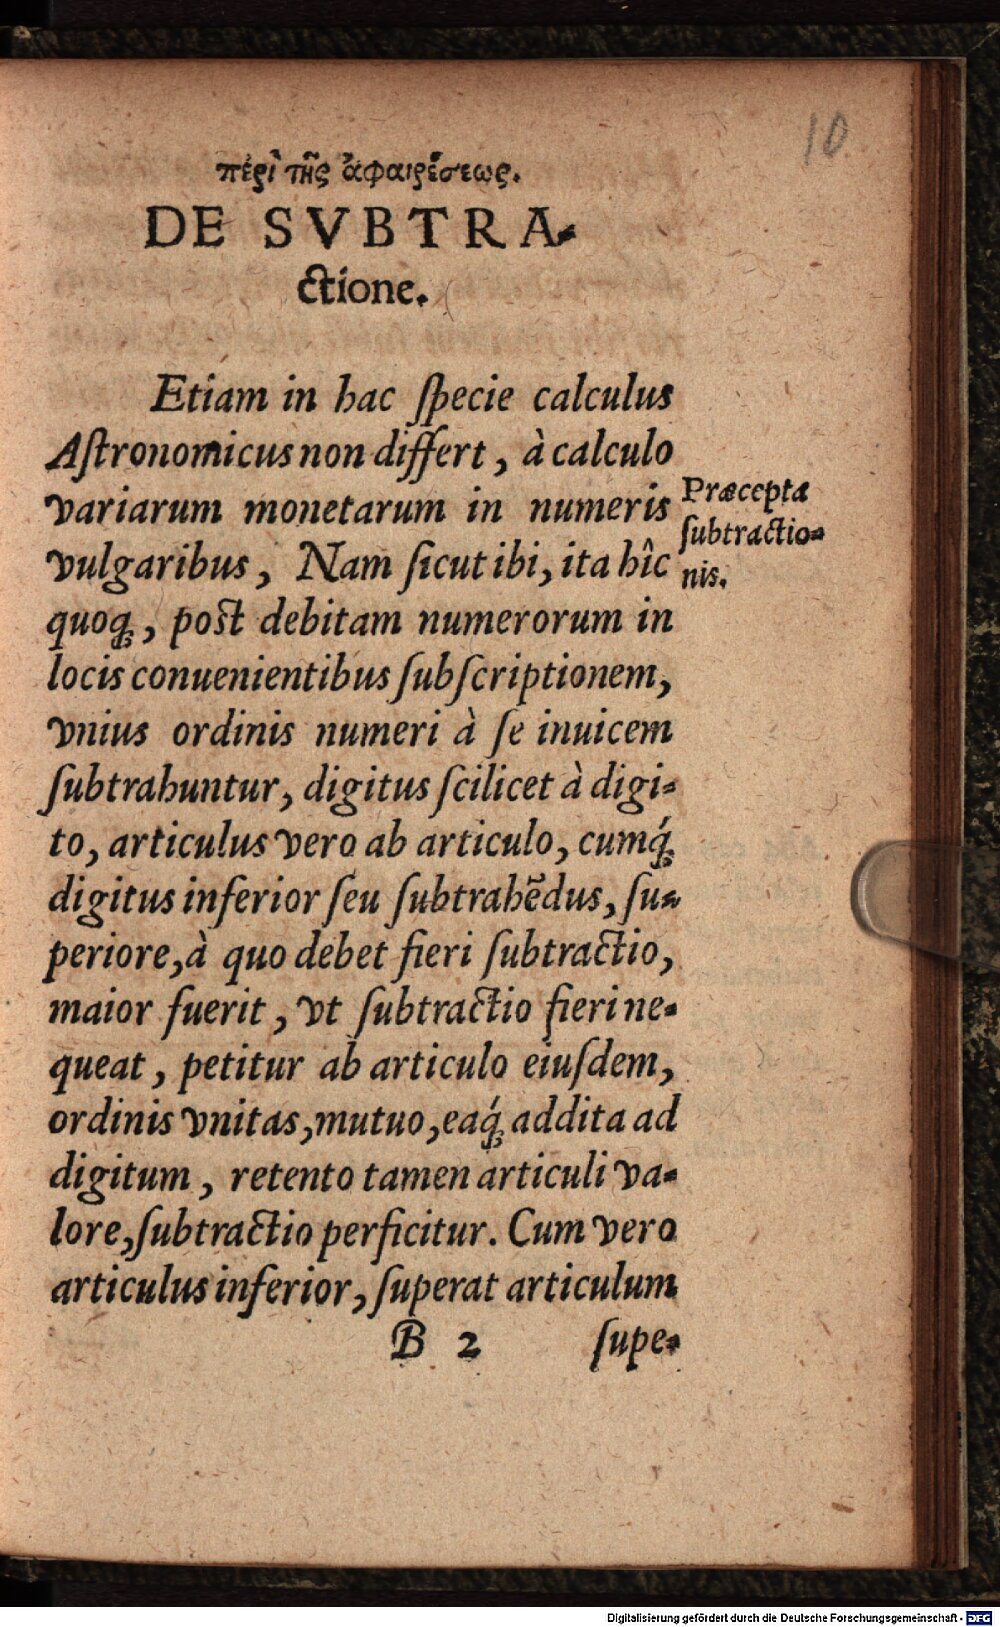 10
πέρὶ τῆς ἀφαιρέσεως.
DE SVBTRA-
ctione.
Etiam in hac ſpecie calculus
Aſtronomicus non differt, à calculo
variarum monetarum in numeris
vulgaribus, Nam ſicut ibi, ita hîc
quoq́;, poſt debitam numerorum in
locis conuenientibus ſubſcriptionem,
vnius ordinis numeri à ſe inuicem
ſubtrahuntur, digitus ſcilicet à digi-
to, articulus vero ab articulo, cumq́;
digitus inferior ſeu ſubtrahēdus, ſu-
periore, à quo debet fieri ſubtractio,
maior fuerit, vt ſubtractio fieri ne-
queat, petitur ab articulo eiuſdem,
ordinis vnitas, mutuo, eaq́; addita ad
digitum, retento tamen articuli va-
lore, ſubtractio perficitur. Cum vero
articulus inferior, ſuperat articulum
B 2 ſupe-
Præcepta
ſubtractio-
nis.
Digitalisierung gefördert durch die Deutsche Forschungsgemeinschaft - DFG